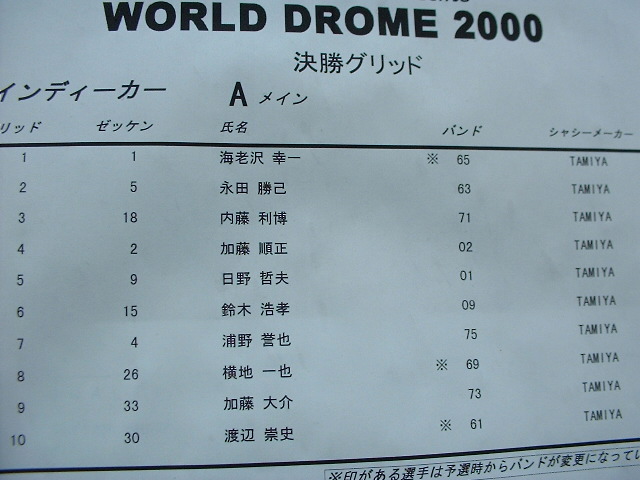 WORLD DROME 2000
決勝グリッド
インディーカー A メイン
リッド ゼッケン 氏名 バンド シャシーメーカー
1 1 海老沢 幸一 ※ 65 TAMIYA
2 5 永田 勝己 63 TAMIYA
3 18 内藤 利博 71 TAMIYA
4 2 加藤 順正 02 TAMIYA
5 9 日野 哲夫 01 TAMIYA
6 15 鈴木 浩孝 09 TAMIYA
7 4 浦野 誉也 75 TAMIYA
8 26 横地 一也 ※ 69 TAMIYA
9 33 加藤 大介 73 TAMIYA
10 30 渡辺 崇史 ※ 61 TAMIYA
※印がある選手は予選時からバンドが変更になってい